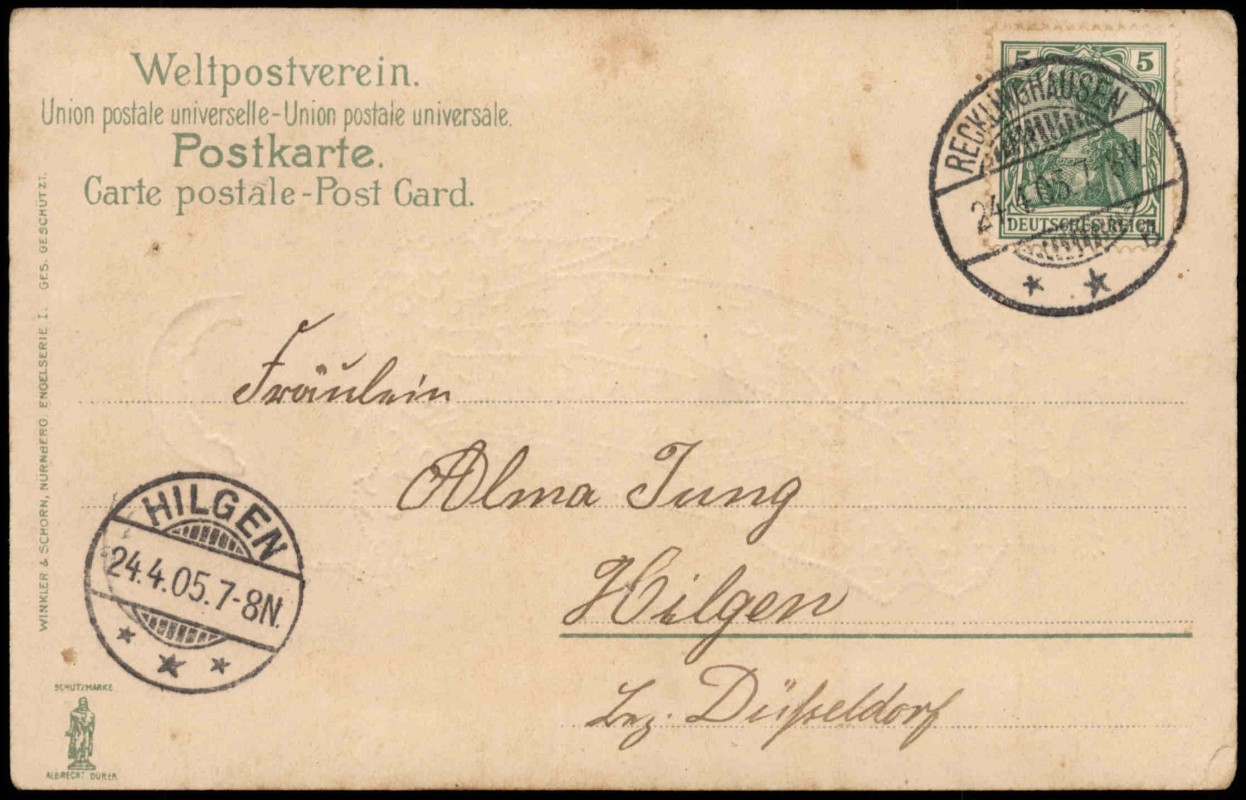 Weltpostverein.
Union postale universelle-Union postale universale.
Postkarte.
Carte postale-Post Card.
5 5
DEUTSCHES REICH
RECKLINGHAUSEN
24.4.05.7-8V.
Fräulein
Alma Jung
Hilgen
Bez. Düßeldorf
HILGEN
24.4.05.7-8N.
WINKLER & SCHORN, NÜRNBERG. ENGELSERIE I. GES. GESCHÜTZT.
SCHUTZMARKE
ALBRECHT DÜRER